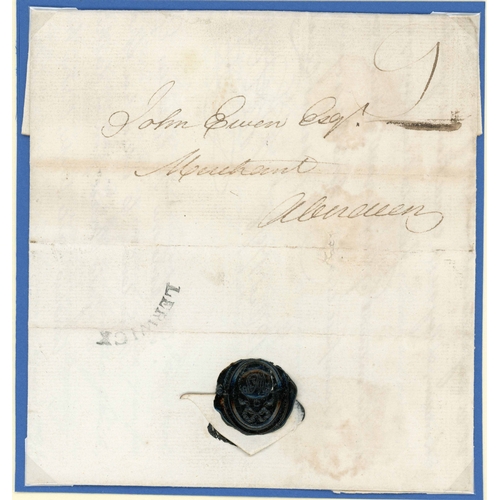 John Ewen Esqr.
Merchant
Aberdeen
LERWICK